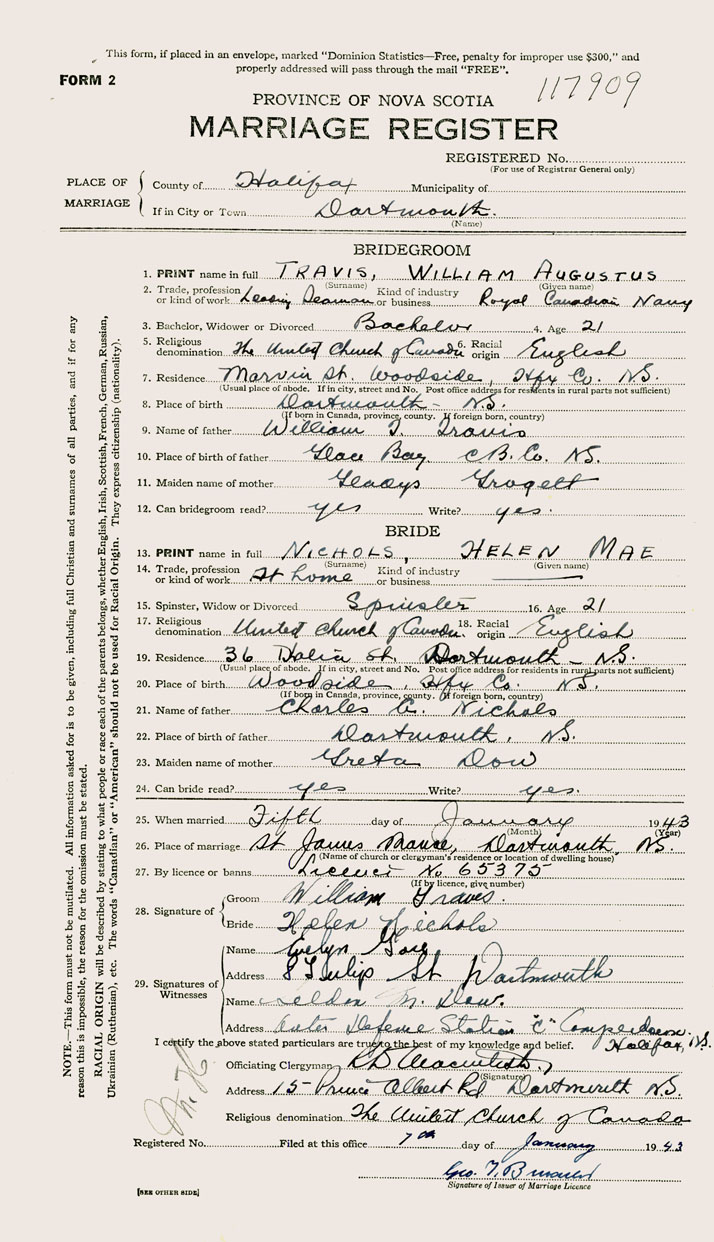 This form, if placed in an envelope, marked "Dominion Statistics—Free, penalty for improper use $300," and
properly addressed will pass through the mail "FREE".
FORM 2
117909
PROVINCE OF NOVA SCOTIA
MARRIAGE REGISTER
REGISTERED No.
(For use of Registrar General only)
PLACE OF MARRIAGE
County of Halifax Municipality of
If in City or Town Dartmouth.
(Name)
BRIDEGROOM
1. PRINT name in full TRAVIS, WILLIAM AUGUSTUS
(Surname) (Given name)
2. Trade, profession or kind of work Leading Seaman Kind of industry or business Royal Canadian Navy
3. Bachelor, Widower or Divorced Bachelor 4. Age 21
5. Religious denomination The United Church of Canada 6. Racial origin English
7. Residence Marvin St. Woodside, Hfx Co. N.S.
(Usual place of abode. If in city, street and No. Post office address for residents in rural parts not sufficient)
8. Place of birth Dartmouth - N.S.
(If born in Canada, province, county. If foreign born, country)
9. Name of father William T. Travis
10. Place of birth of father Glace Bay C.B. Co. N.S.
11. Maiden name of mother Gladys
12. Can bridegroom read? yes Write? yes.
BRIDE
13. PRINT name in full NICHOLS, HELEN MAE
(Surname) (Given name)
14. Trade, profession or kind of work At home Kind of industry or business
15. Spinster, Widow or Divorced Spinster 16. Age 21
17. Religious denomination United Church of Canada. 18. Racial origin English
19. Residence 36 St. Dartmouth - N.S.
(Usual place of abode. If in city, street and No. Post office address for residents in rural parts not sufficient)
20. Place of birth Woodside, Hfx Co. N.S.
(If born in Canada, province, county. If foreign born, country)
21. Name of father Charles Nichols
22. Place of birth of father Dartmouth, N.S.
23. Maiden name of mother Greta Dow
24. Can bride read? yes Write? yes.
25. When married Fifth day of January 1943
(Month) (Year)
26. Place of marriage St James Manse, Dartmouth, N.S.
(Name of church or clergyman's residence or location of dwelling house)
27. By licence or banns Licence No 65375
(If by licence, give number)
28. Signature of
Groom William Travis.
Bride Helen Nichols
29. Signatures of Witnesses
Name Evelyn
Address 8 Tulip St Dartmouth
Name M. Dow.
Address Outer Defense Station "C"
Halifax, N.S.
I certify the above stated particulars are true to the best of my knowledge and belief.
Officiating Clergyman Macintosh
(Signature)
Address 15 Prince Albert Rd Dartmouth N.S.
Religious denomination The United Church of Canada
Registered No. Filed at this office 7th day of January 1943
Geo. T.
Signature of Issuer of Marriage Licence
[SEE OTHER SIDE]
NOTE.—This form must not be mutilated. All information asked for is to be given, including full Christian and surnames of all parties, and if for any
reason this is impossible, the reason for the omission must be stated.
RACIAL ORIGIN will be described by stating to what people or race each of the parents belongs, whether English, Irish, Scottish, French, German, Russian,
Ukrainian (Ruthenian), etc. The words "Canadian" or "American" should not be used for Racial Origin. They express citizenship (nationality).